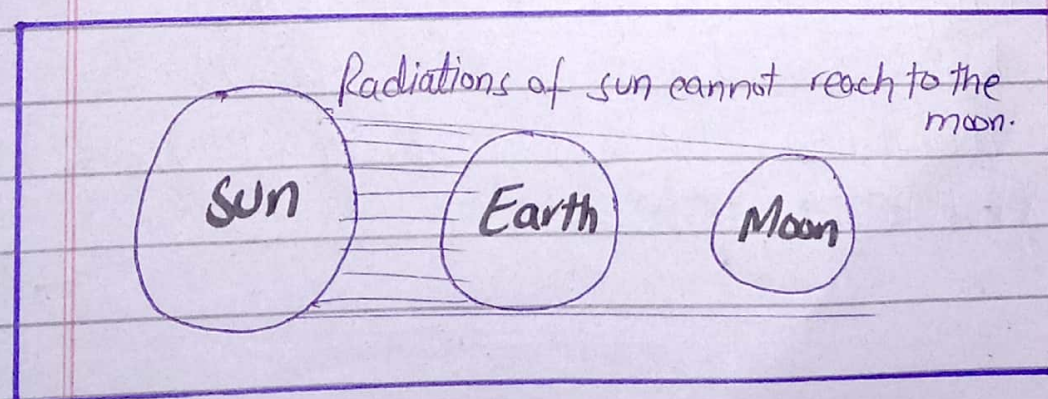 Radiations of sun cannot reach to the
moon.
Sun
Earth
Moon